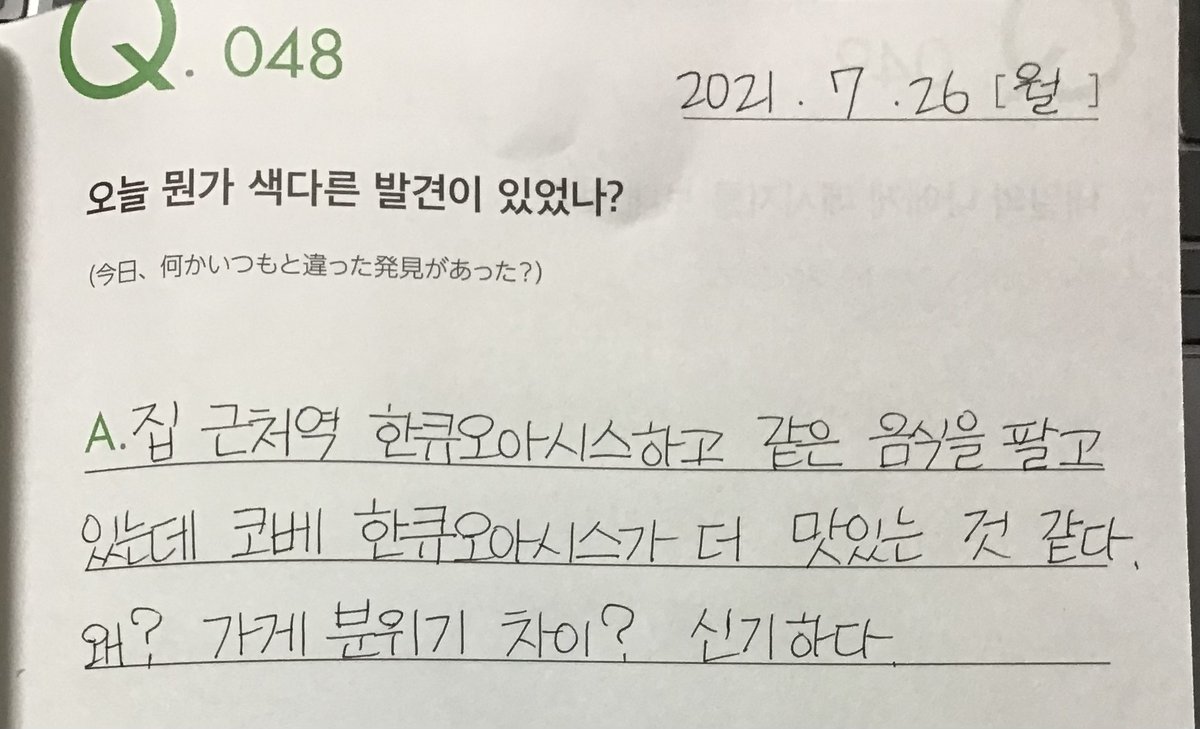 Q. 048
2021. 7. 26 [월]
오늘 뭔가 색다른 발견이 있었나?
(今日、何かいつもと違った発見があった?)
A. 집 근처역 한큐오아시스하고 같은 음식을 팔고
있는데 코베 한큐오아시스가 더 맛있는 것 같다.
왜? 가게 분위기 차이? 신기하다.